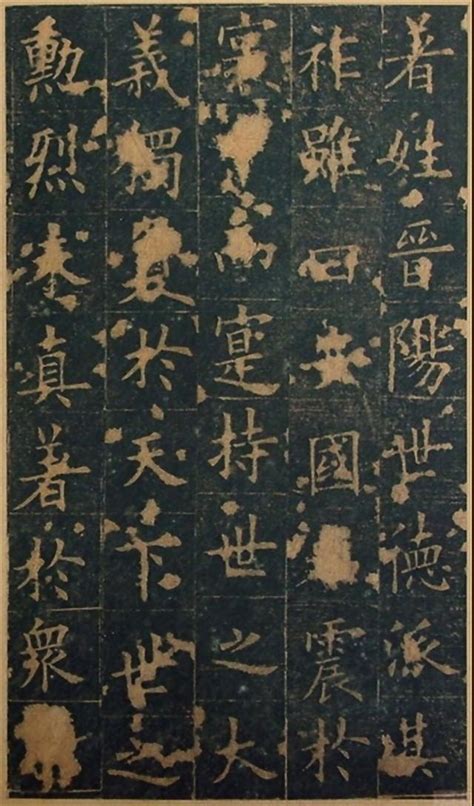 著姓晉陽世德派其
祚雖曰安國震於
寔持世之大
義獨於天下世之
勳烈真著於眾